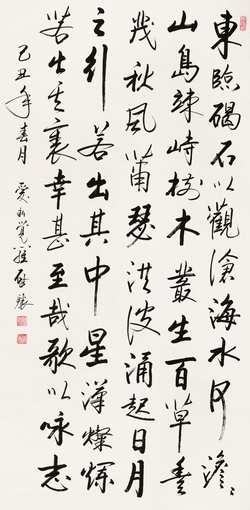 東臨碣石以觀滄海水何澹〻
山島竦峙樹木叢生百草豊
茂秋風蕭瑟洪波涌起日月
之行若出其中星漢燦爛
若出其裏幸甚至哉歌以咏志
己丑年春月 愛新覺羅